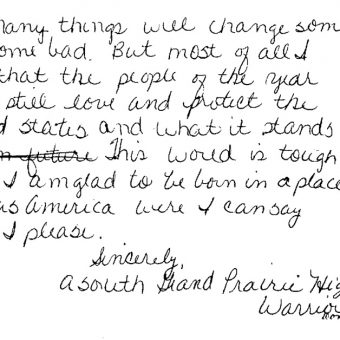 many things will change som
ome bad. But most of all I
that the people of the year
still love and protect the
d states and what it stands
in future This world is tough
I am glad to be born in a place
as America were I can say
I please.
Sincerely,
A South Grand Prairie Hig
Warrior